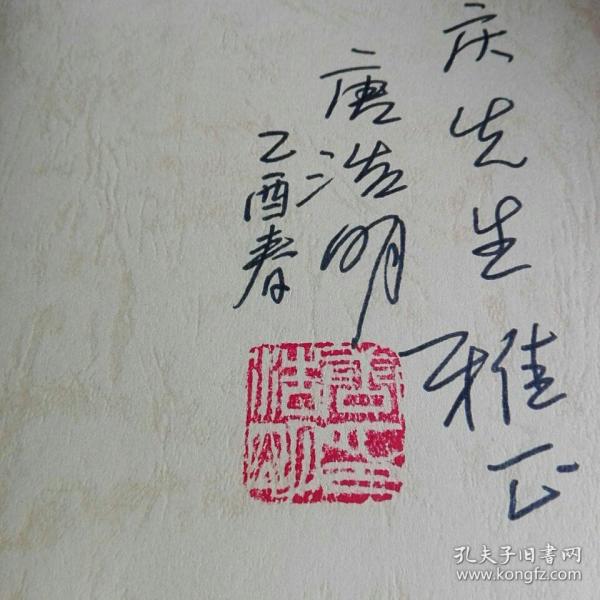 庆先生雅正
唐浩明
乙酉春
唐浩明印
孔夫子旧书网
www.kongfz.com